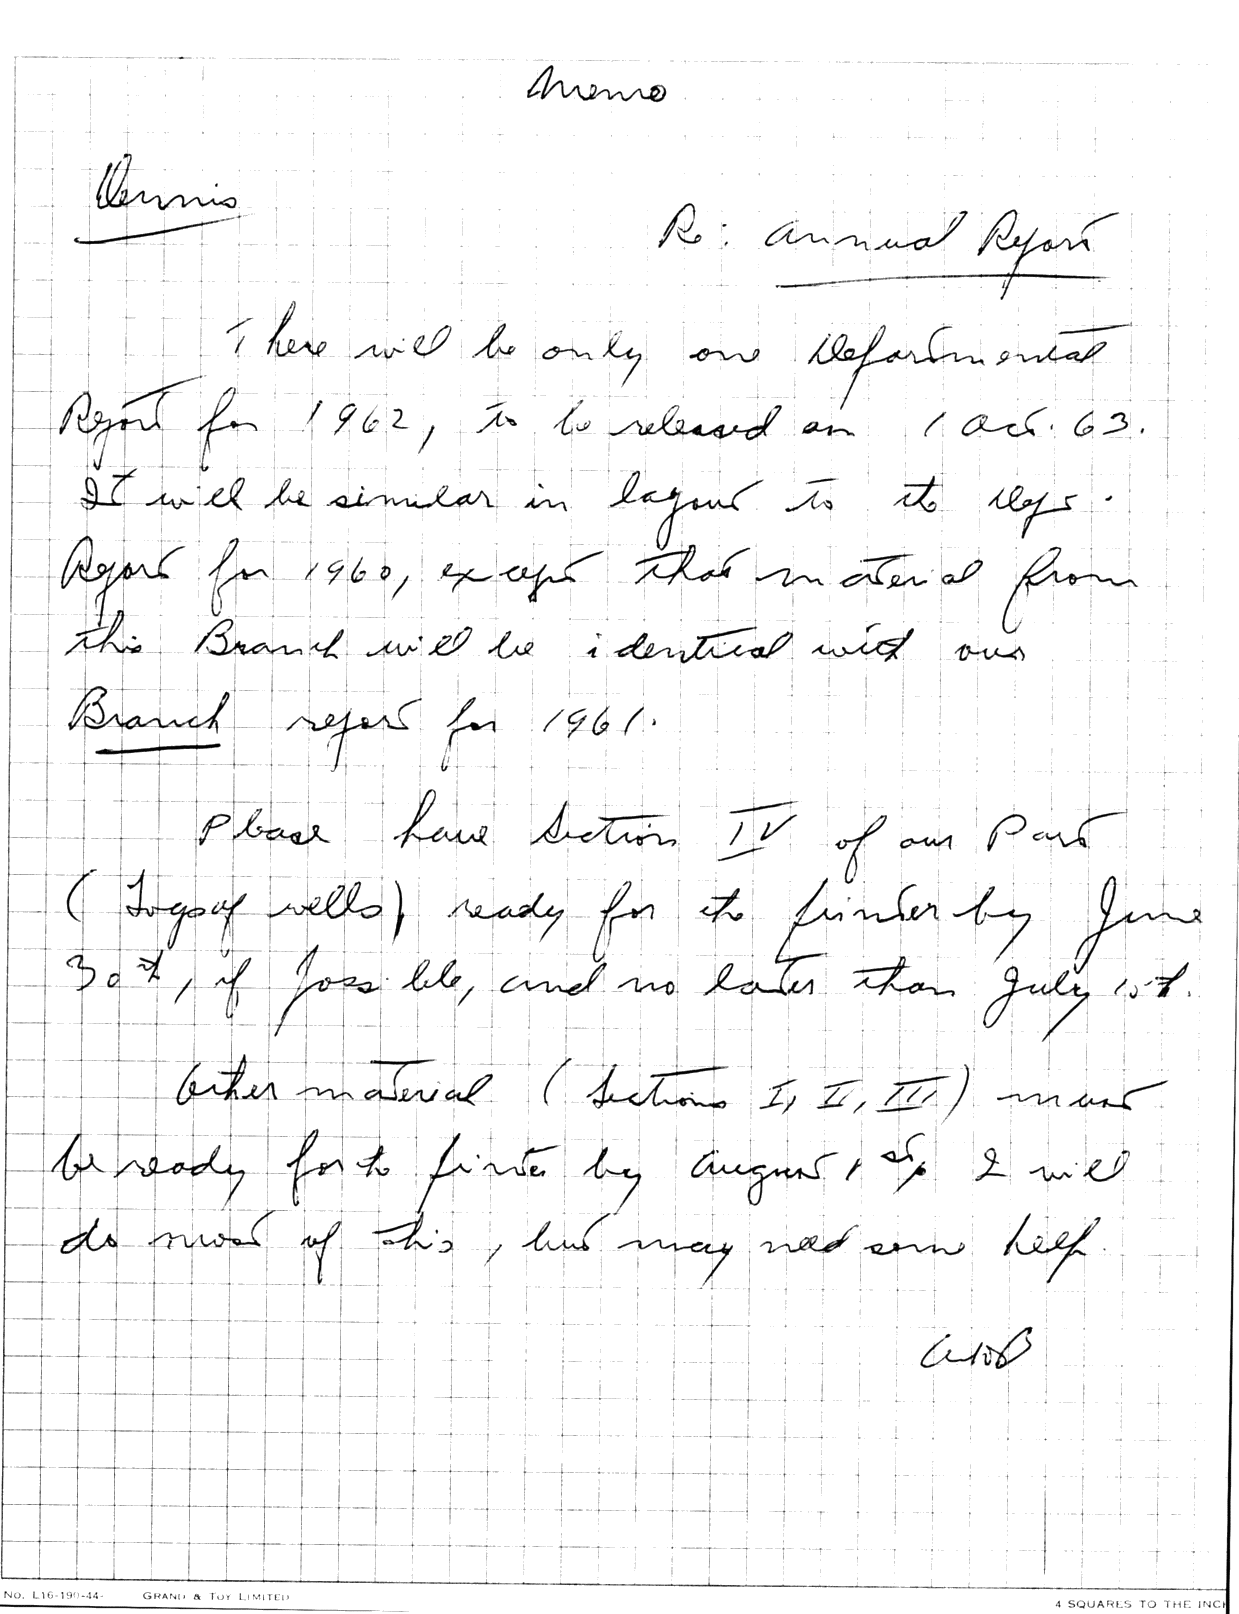 Memo
Dennis
Re: Annual Report
There will be only one Departmental
Report for 1962, to be released on 1 Oct. 63.
It will be similar in layout to the Dept.
Report for 1960, except that material from
this Branch will be identical with our
Branch report for 1961.
Please have Section IV of our Part
(Logs of wells) ready for the printer by June
30th, if possible, and no later than July 15th.
Other material (Sections I, II, III) must
be ready for the printer by August 1st. I will
do most of this, but may need some help.
No. L16-190-44- GRAND & TOY LIMITED
4 SQUARES TO THE INCH